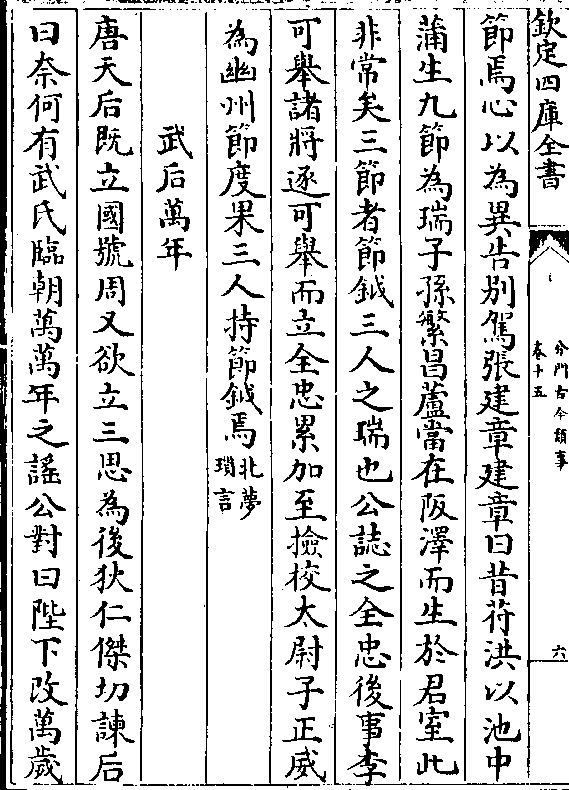 欽定四庫全書
分門古今類事
卷十五
六
節焉心以為異告別駕張建章建章曰昔苻洪以池中
蒲生九節為瑞子孫繁昌蘆當在阪澤而生於君室此
非常矣三節者節鉞三人之瑞也公誌之全忠後事李
可舉諸將逐可舉而立全忠累加至撿校太尉子正威
為幽州節度果三人持節鉞焉北夢瑣言
武后萬年
唐天后既立國號周又欲立三思為後狄仁傑切諫后
曰奈何有武氏臨朝萬萬年之謠公對曰陛下改萬歲